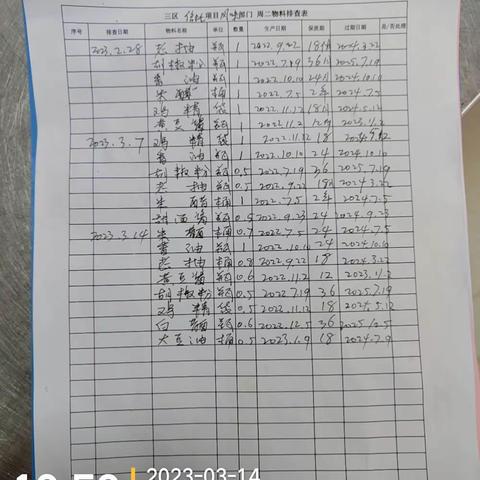 三区 信托项目风味部门 周二物料排查表
序号 排查日期 物料名称 单位 数量 生产日期 保质期 过期日期 是/否处理
2023.2.28 老抽 瓶 1 2022.9.22 18个月 2024.3.22
胡椒粉 瓶 1 2022.7.19 36个月 2025.7.19
香油 瓶 1 2022.10.10 24月 2024.10.10
米醋 桶 1 2022.7.5 2年 2024.7.5
鸡精 袋 1 2022.11.12 18月 2024.5.12
黄豆酱 瓶 1 2022.11.2 12月
2023.3.7 鸡精 袋 1 18
香油 瓶 1 2022.10.10 24 2024.10.10
胡椒粉 瓶 0.5 2022.7.19 36 2025.7.19
老抽 瓶 0.5 2022.9.22 18 2024.3.22
米醋 桶 1 2022.7.5 2年 2024.7.5
甜面酱 瓶 0.9 2022.9.23 24 2024.9.23
2023.3.14 米醋 桶 0.7 2022.7.5 24 2024.7.5
香油 瓶 1 2022.10.10 24 2024.10.10
老抽 桶 0.8 2022.9.22 18 2024.3.22
黄豆酱 瓶 0.6 2022.11.2 12 2023.11.2
胡椒粉 瓶 0.5 2022.7.19 36 2025.7.19
鸡精 袋 0.5 2022.11.12 18 2024.5.12
白醋 瓶 0.6 2022.12.5 36 2025.12.5
大豆油 桶 0.5 2023.1.9 18 2024.7.9
2023-03-14